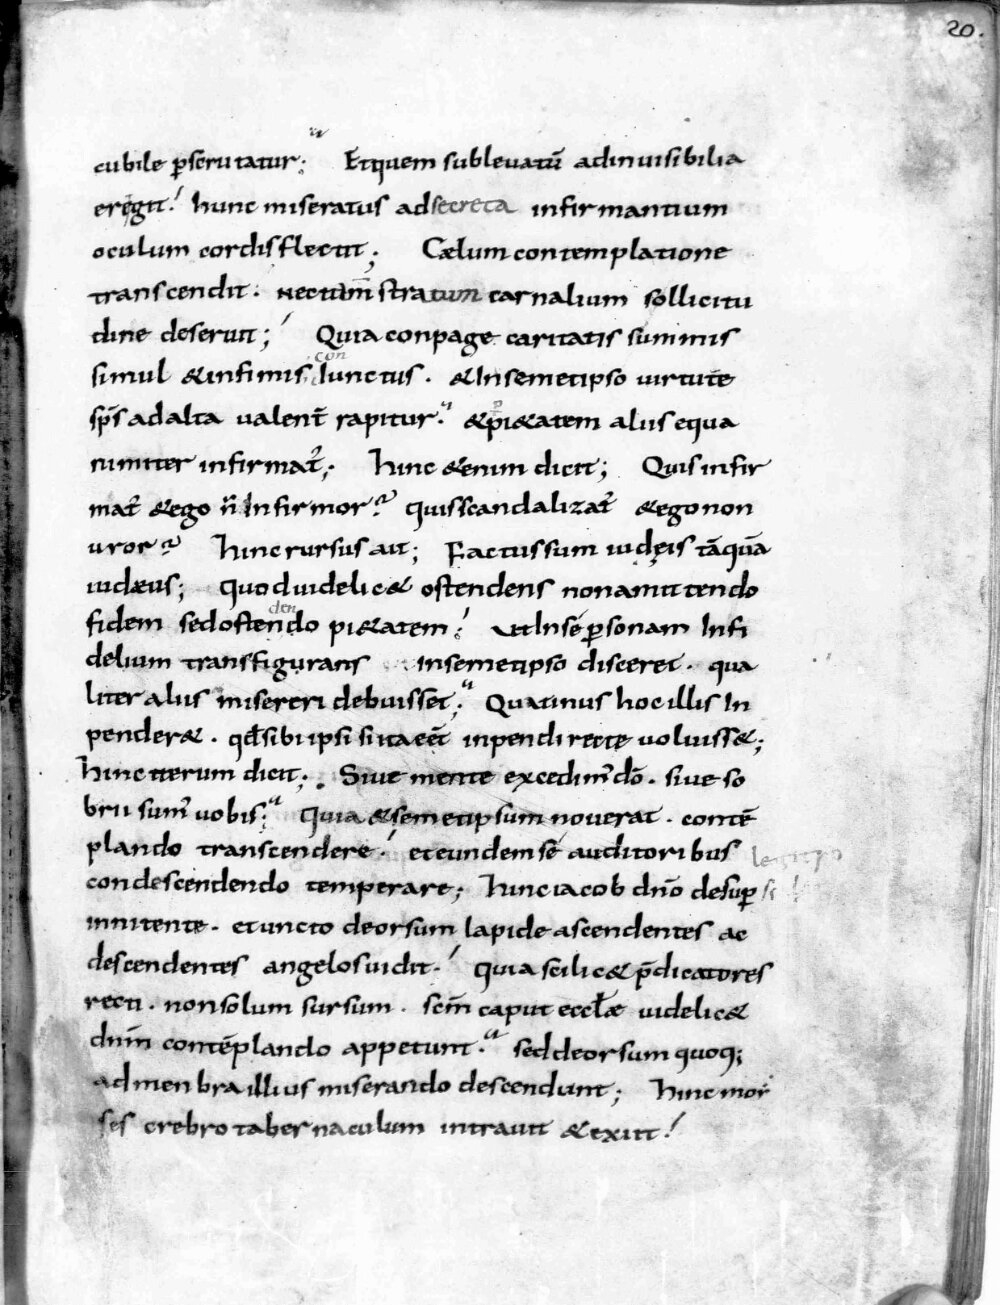 20.
cubile ꝑscrutatur; Et quem subleuatū ad inuisibilia
eregit! hunc miseratus ad secreta infirmantium
oculum cordis flectit; Cælum contemplatione
transcendit. nec tam̄ stratum carnalium sollicitu
dine deserit; Quia conpage caritatis summis
simul & infimis con iunctus. & In semetipso uirtute
sps̄ ad alta ualent̄ rapitur. & pi&atem aliis equa
nimiter infirmat̄; hinc &enim dicit; Quis infir
mat̄ & ego n̄ Infirmor? quis scandalizat̄ & ego non
uror? hinc rursus ait; Factus sum iudęis tāquā
iudæus; Quod uidelic& ostendens non amittendo
fidem sed osten den do pi&atem! Vt In sē ꝑsonam Infi
delium transfigurans in semetipso disceret. qua
liter aliis misereri debuisset; Quatinus hoc illis In
pender&. qd̄ sibi ipsi si ita eēt inpendi recte uoluiss&;
hinc iterum dicit; Siue mente excedim̄ dō. siue so
brii sum̄ uobis; Quia & semetipsum nouerat. contē
plando transcendere! et eundem sē auditoribus
condescendendo temperare; hinc iacob dn̄o desuꝑ
innitente. et uncto deorsum lapide ascendentes ac
descendentes angelos uidit! quia scilic& p̄dicatores
recti. non solum sursum. scm̄ caput eccłæ uidelic&
dnm̄ contēplando appetunt. sed deorsum quoq;
ad menbra illius miserando descendunt; hinc moy
ses crebro tabernaculum intrauit & exiit!